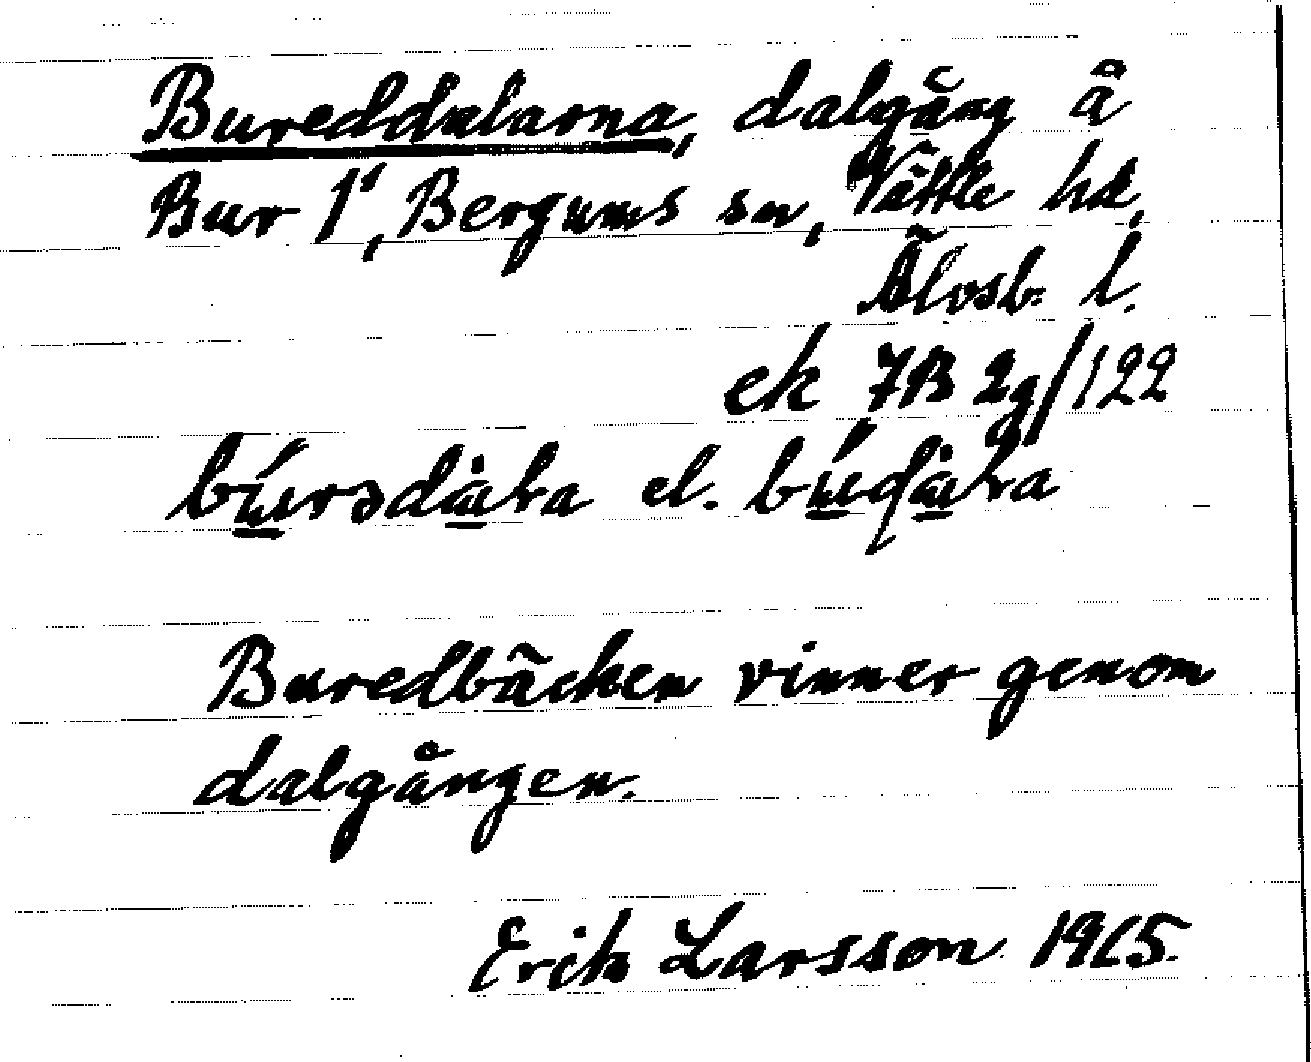 Bureddalarna, dalgång å
Bur 1¹, Bergums sn, Vättle hd,
Älvsb. l.
ek 7B 2g/122
bu̲rsda̲ła el. bu̲ɖa̲ła
Buredbäcken rinner genom
dalgången.
Erik Larsson 1965.